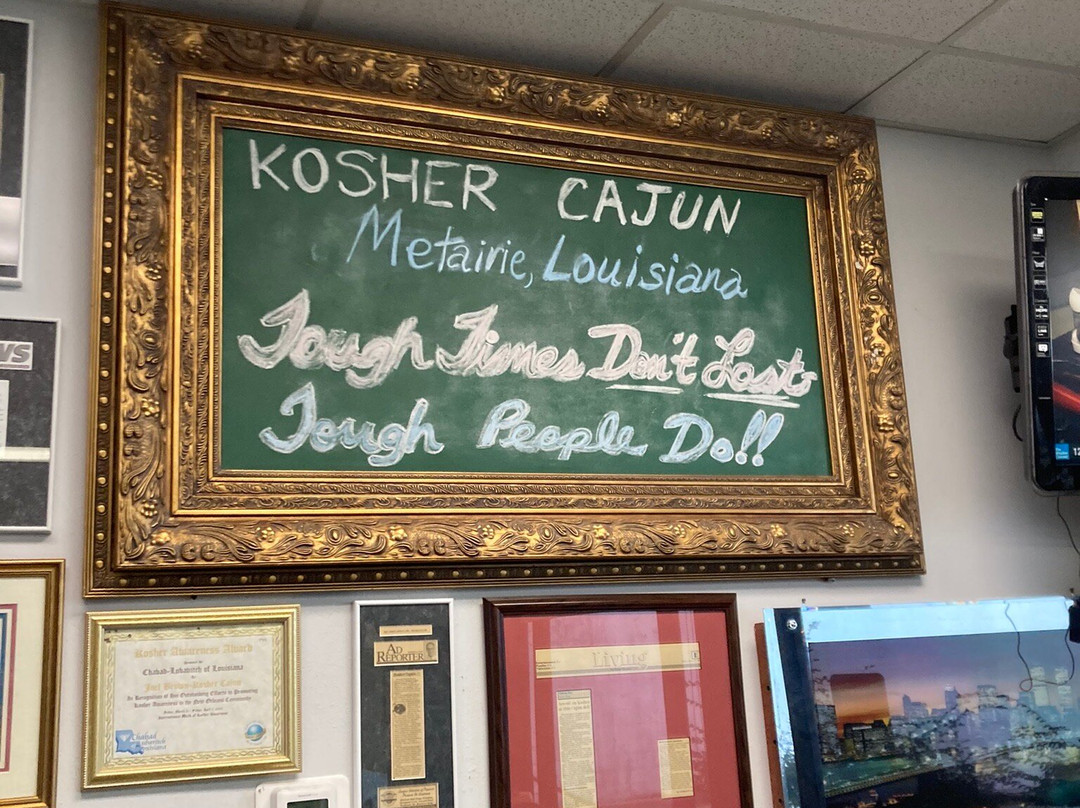 KOSHER CAJUN
Metairie, Louisiana
Tough Times Don't Last
Tough People Do!!
WS
Kosher Awareness Award
Chabad-Lubavitch of Louisiana
Joel Brown-Kosher Cajun
In Recognition of His Outstanding Efforts in Promoting
Kosher Awareness in the New Orleans Community
Chabad
Lubavitch
Louisiana
AD
REPORTER
Living